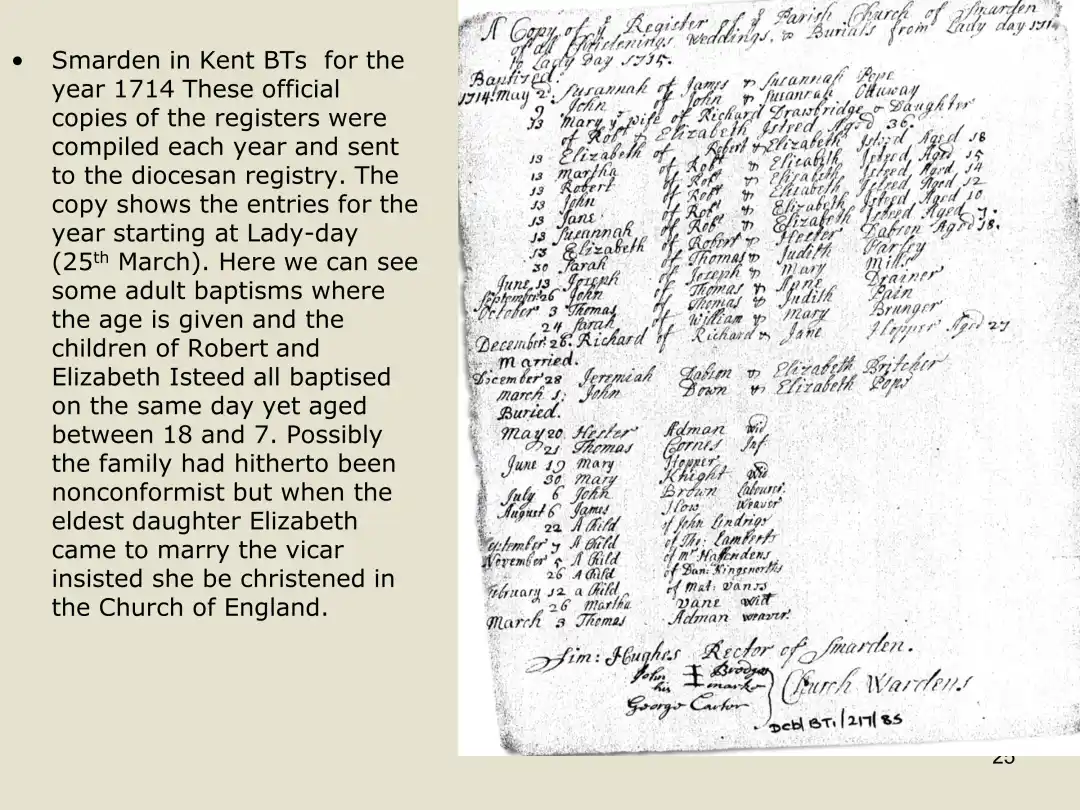 • Smarden in Kent BTs for the
year 1714 These official
copies of the registers were
compiled each year and sent
to the diocesan registry. The
copy shows the entries for the
year starting at Lady-day
(25th March). Here we can see
some adult baptisms where
the age is given and the
children of Robert and
Elizabeth Isteed all baptised
on the same day yet aged
between 18 and 7. Possibly
the family had hitherto been
nonconformist but when the
eldest daughter Elizabeth
came to marry the vicar
insisted she be christened in
the Church of England.
A Copy of ye Register of ye Parish Church of Smarden
of all Christenings, Weddings, & Burials from Lady day 1714
to Lady Day 1715.
Baptized.
1714. May 2d. Susannah of James & Susannah Pope
9 John of John & Susanah Ottuway
13 Mary ye wife of Richard Drawbridge & Daughter
of Robt & Elizabeth Isteed Aged 36.
13 Elizabeth of Robert & Elizabeth Isteed Aged 18
13 Martha of Robt & Elizabeth Isteed, Aged 15
13 Robert of Robt & Elizabeth Isteed, Aged 14
13 John of Robt & Elizabeth Isteed, Aged 12
13 Jane of Robt & Elizabeth Isteed, Aged 10
13 Susannah of Rob & Elizabeth Isteed Aged 7.
13 Elizabeth of Robert & Hester Dabson Aged 18.
30 Sarah of Thomas & Judith Farley
June 13 Joseph of Joseph & Mary Miller
September 26 John of Thomas & Anne Drainer
October 3 Thomas of Thomas & Judith Pain
24 Sarah of William & Mary Brunger
December 26. Richard of Richard & Jane Hopper Aged 27
Married.
December 28 Jeremiah Dabson & Elizabeth Britcher
March 1: John Down & Elizabeth Pope
Buried.
May 20 Hester Adman Wid
21 Thomas Cornes Inf
June 19 Mary Hopper
30 Mary Knight Wid
July 6 John Brown Labourer.
August 6 James How Weaver
22 A Child of John Lindrigs
September 7 A Child of Tho: Lamberts
November 5 A Child of Mr Haffendens
26 A Child of Dan: Kingsnorths
February 12 a Child of Mat: Vanss
26 Martha Vane Wid
March 3 Thomas Adman weaver.
Sim: Hughes Rector of Smarden.
John Brodges
his marke
George Carter
Church Wardens
Dcb/BT1/217/85
25